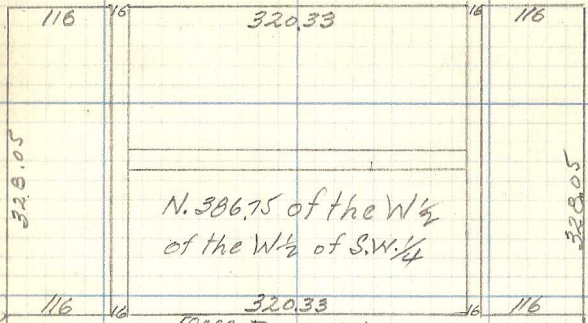 116 16 320.33 16 116
328.05
328.05
N. 386.75 of the W½
of the W½ of S.W.¼
116 16 320.33 16 116